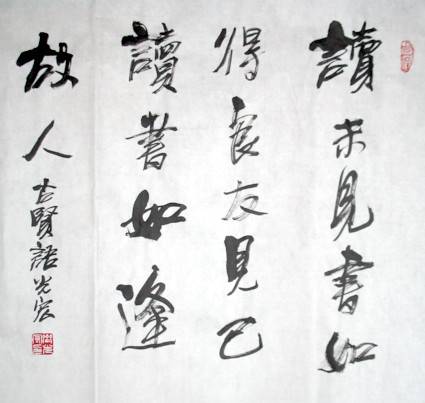 讀未見書如
得良友見已
讀書如逢
故人
古賢語光宏